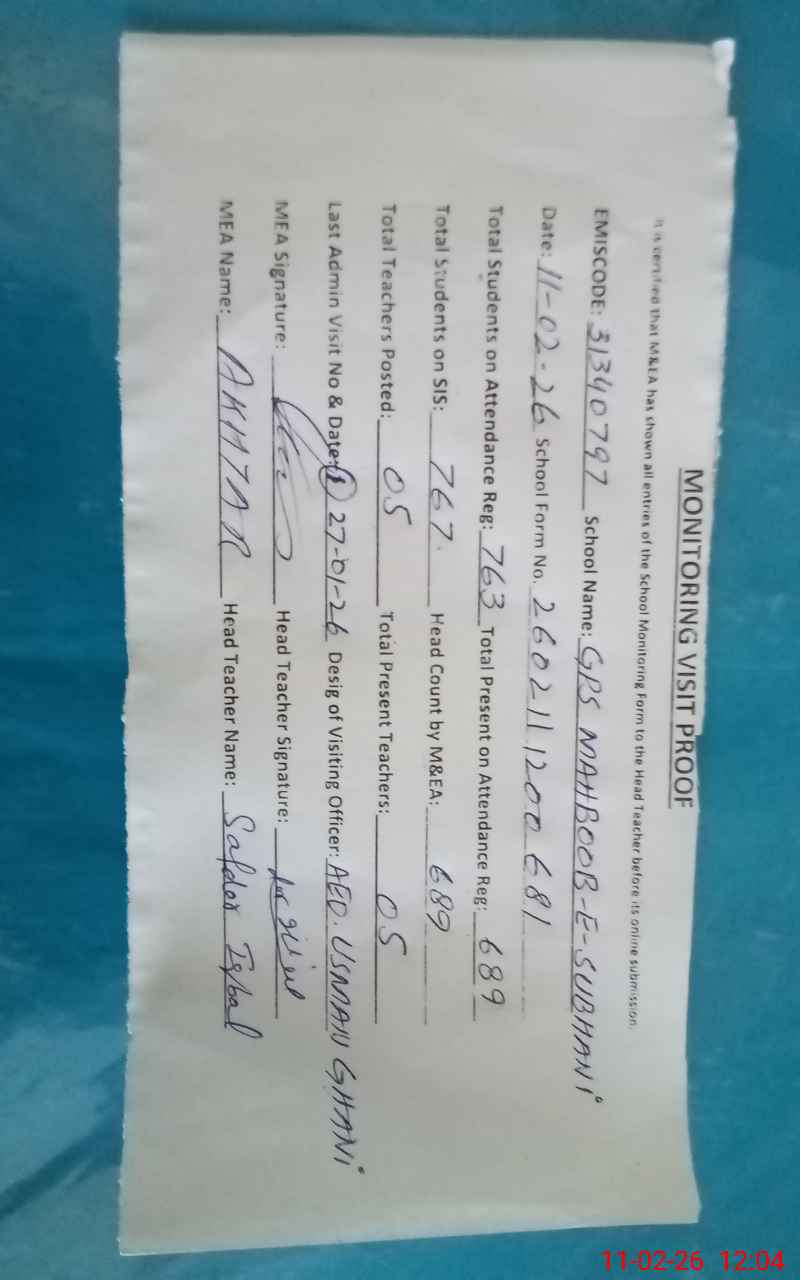 MONITORING VISIT PROOF
It is certified that M&EA has shown all entries of the School Monitoring Form to the Head Teacher before its online submission.
EMISCODE: 31340797 School Name: GPS MAHBOOB-E-SUBHANI
Date: 11-02-26 School Form No. 260211200681
Total Students on Attendance Reg: 763 Total Present on Attendance Reg: 689
Total Students on SIS: 767. Head Count by M&EA: 689
Total Teachers Posted: 05 Total Present Teachers: 05
Last Admin Visit No & Date: 27-01-26 Desig of Visiting Officer: AEO. USMAN GHANI
MEA Signature: Head Teacher Signature:
MEA Name: AKHTAR Head Teacher Name: Safder Iqbal
11-02-26 12:04